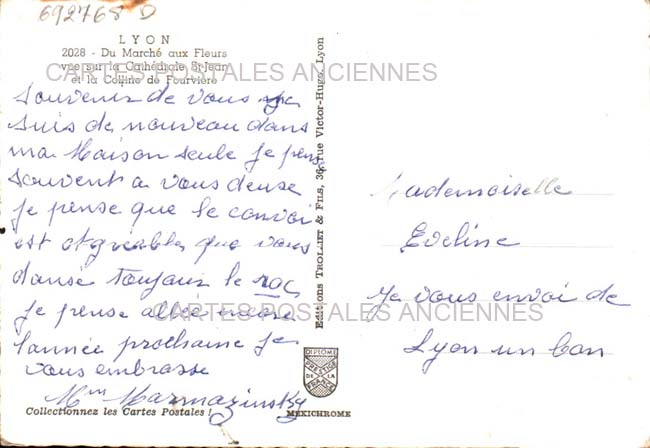 692768 D
LYON
2028 - Du Marché aux Fleurs
vue sur la Cathédrale St-Jean
et la Colline de Fourvière
CARTES POSTALES ANCIENNES
Souvenir de vous je
suis de nouveau dans
ma Maison seule je pens
souvent a vous deuse
je pense que le convoi
est atgréable que vous
dansé toujour le roc
je pense allée encore
l'année prochaine je
vous embrasse
Mme Marmazinsky
Collectionnez les Cartes Postales !
Editions TROLLIET & FILS, 36, rue Victor-Hugo, Lyon
DIPLOME
PRESTIGE
DE LA
FRANCE
MEXICHROME
Mademoiselle
Eveline
je vous envoi de
CARTES POSTALES ANCIENNES
Lyon un bon